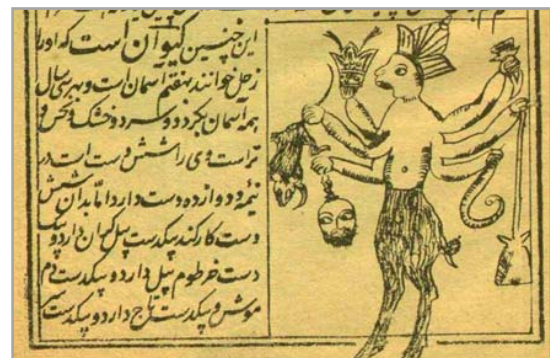 این چنین کیوان است که اورا
زحل خوانند بهفتم آسمان است و بهر سی سال
همه آسمان بگردد و سرد و خشک و نحس و
تر است وی را شش دست است در
نیمه و دوازده دست دارد اما بدان شش
دست کار کند بیکدست پیل کران دارد و بیک
دست خرطوم پیل دارد و بیکدست دم
موش و بیکدست تاج دارد و بیکدست سر